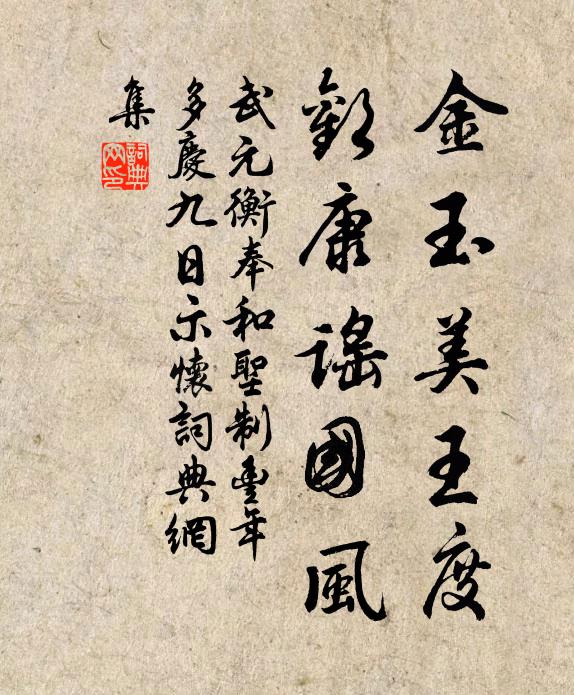 金玉美王度
歡康謠國風
武元衡奉和聖制豐年
多慶九日示懷詞典網
集
詞典
网印